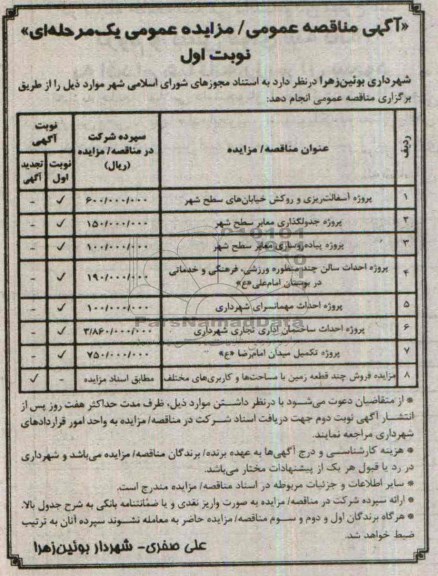 «آگهی مناقصه عمومی/ مزایده عمومی یک‌مرحله‌ای»
نوبت اول
شهرداری بوئین‌زهرا درنظر دارد به استناد مجوزهای شورای اسلامی شهر موارد ذیل را از طریق
برگزاری مناقصه عمومی انجام دهد:
ردیف عنوان مناقصه/ مزایده سپرده شرکت در مناقصه/ مزایده (ریال) نوبت آگهی نوبت اول تجدید آگهی
۱ پروژه آسفالت‌ریزی و روکش خیابان‌های سطح شهر ۶۰۰/۰۰۰/۰۰۰ ✓ -
۲ پروژه جدولگذاری معابر سطح شهر ۱۵۰/۰۰۰/۰۰۰ ✓ -
۳ پروژه پیاده‌روسازی معابر سطح شهر ۱۰۰/۰۰۰/۰۰۰ ✓ -
۴ پروژه احداث سالن چند منظوره ورزشی، فرهنگی و خدماتی در بوستان امام‌علی«ع» ۱۹۰/۰۰۰/۰۰۰ ✓ -
۵ پروژه احداث مهمانسرای شهرداری ۱۰۰/۰۰۰/۰۰۰ ✓ -
۶ پروژه احداث ساختمان اداری تجاری شهرداری ۳/۸۶۰/۰۰۰/۰۰۰ ✓ -
۷ پروژه تکمیل میدان امام‌رضا «ع» ۷۵۰/۰۰۰/۰۰۰ ✓ -
۸ مزایده فروش چند قطعه زمین با مساحت‌ها و کاربری‌های مختلف مطابق اسناد مزایده - ✓
* از متقاضیان دعوت می‌شود با درنظر داشتن موارد ذیل، ظرف مدت حداکثر هفت روز پس از
انتشار آگهی نوبت دوم جهت دریافت اسناد شرکت در مناقصه/ مزایده به واحد امور قراردادهای
شهرداری مراجعه نمایند.
* هزینه کارشناسی و درج آگهی‌ها به عهده برنده/ برندگان مناقصه/ مزایده می‌باشد و شهرداری
در رد یا قبول هر یک از پیشنهادات مختار می‌باشد.
* سایر اطلاعات و جزئیات مربوطه در اسناد مناقصه/ مزایده مندرج است.
* ارائه سپرده شرکت در مناقصه/ مزایده به صورت واریز نقدی و یا ضمانتنامه بانکی به شرح جدول بالا.
* هرگاه برندگان اول و دوم و سوم مناقصه/ مزایده حاضر به معامله نشوند سپرده آنان به ترتیب
ضبط خواهد شد.
علی صفری- شهردار بوئین‌زهرا
ParsNamadData